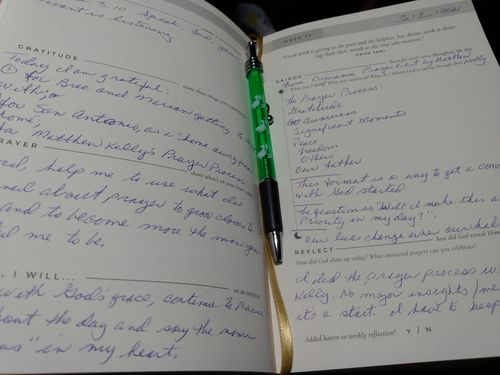 3:10 Speak, Lord, your
servant is listening.
GRATITUDE
Today I am grateful:
① for Bree and Marian getting to
with
for San Antonio, as a "home away from
home".
Matthew Kelly's Prayer Process.
PRAYER
Lord, help me to use what I've
learned about prayer to grow closer to
and to become more the man you
called me to be.
, I WILL...
with God's grace, continue to
throughout the day and say the name
"in my heart.
WEEK
"Good work is giving to the poor and the helpless, but divine work is show-
ing them their worth to the One who matters."
KAIROS
from Dynamic Prayer Chat by Matthew Kelly
The Prayer Process
Gratitude
Awareness
Significant Moments
Peace
Freedom
Others
Our Father
This format is a way to get a
with God started.
The question is, "Will I make this a
Priority in my day?".
Our lives change when our
REFLECT
How did God show up today? What answered prayers can you celebrate?
I did the Prayer Process
Kelly. No major insights
it's a start. I have to keep
Added kairos to weekly reflection? Y / N